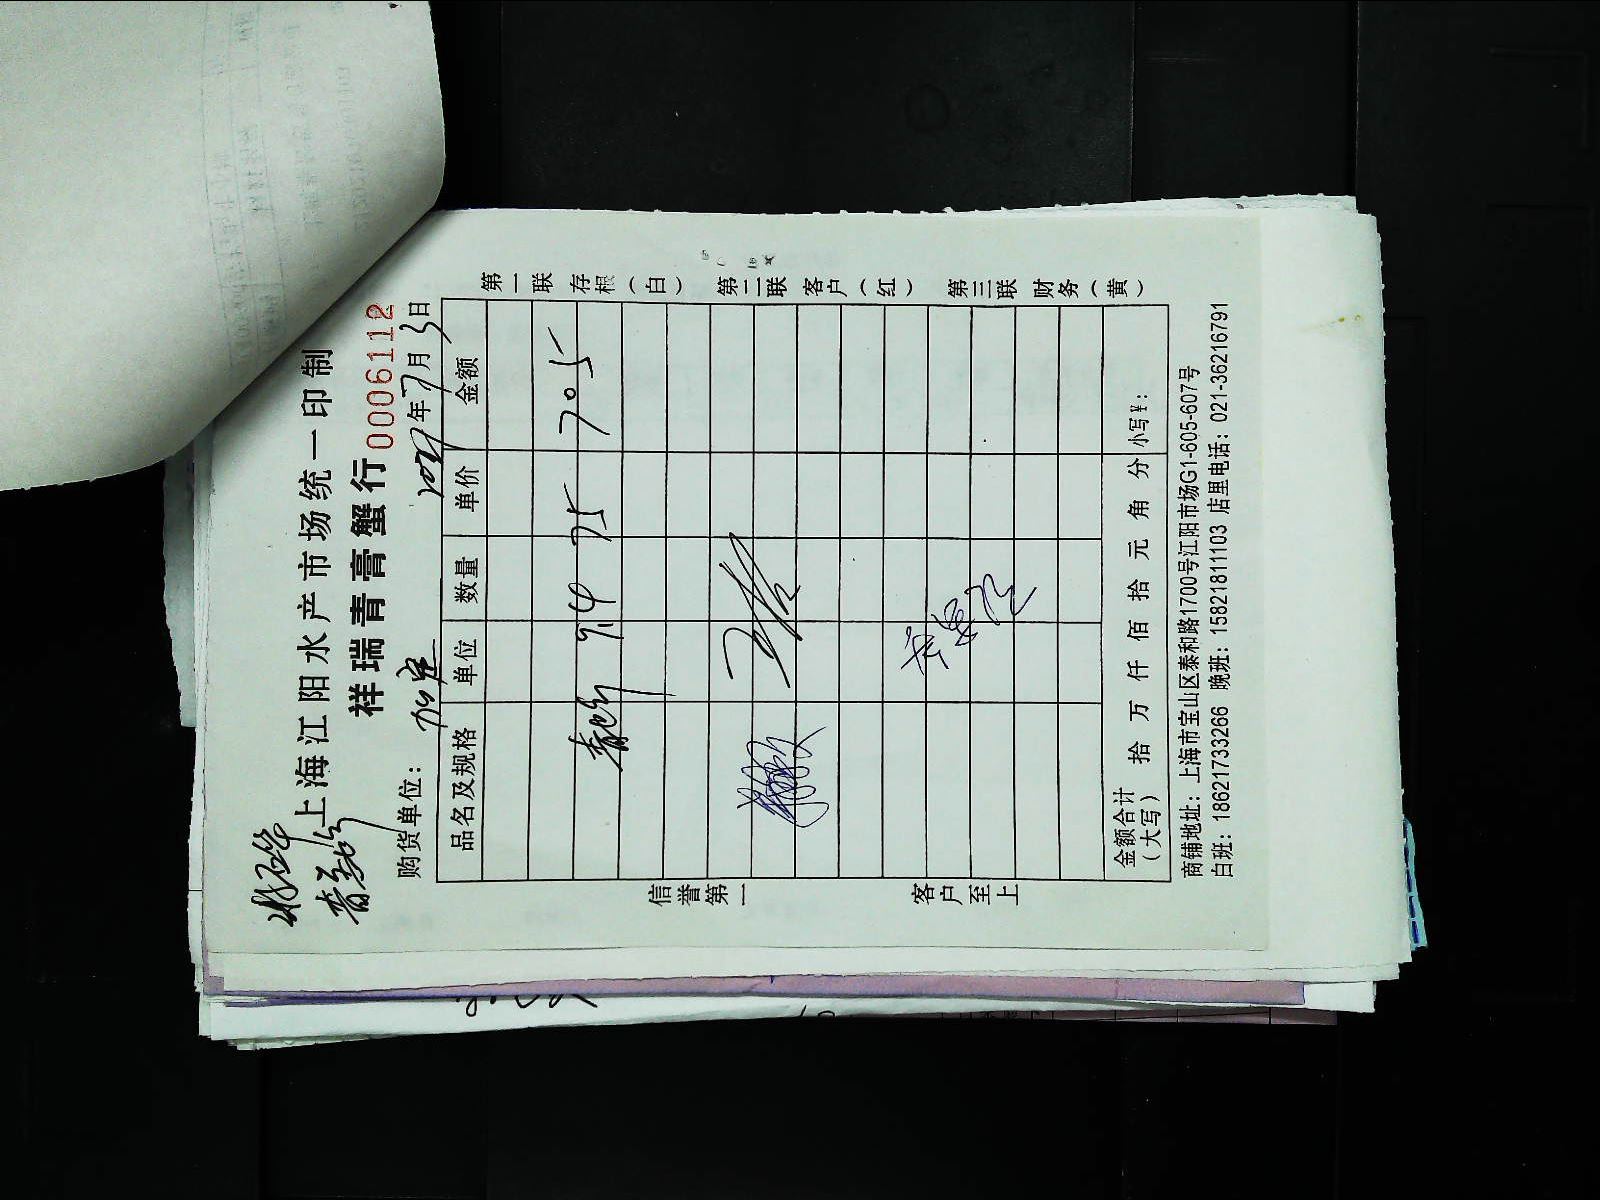 上海江阳水产市场统一印制
祥瑞青膏蟹行 0006112
购货单位： 年7月3日
品名及规格 单位 数量 单价 金额
青 9.4 75 705
金额合计（大写） 拾 万 仟 佰 拾 元 角 分 小写¥：
商铺地址：上海市宝山区泰和路1700号江阳市场G1-605-607号
白班：18621733266 晚班：15821811103 店里电话：021-36216791
信誉第一 客户至上
第一联 存根（白） 第二联 客户（红） 第三联 财务（黄）